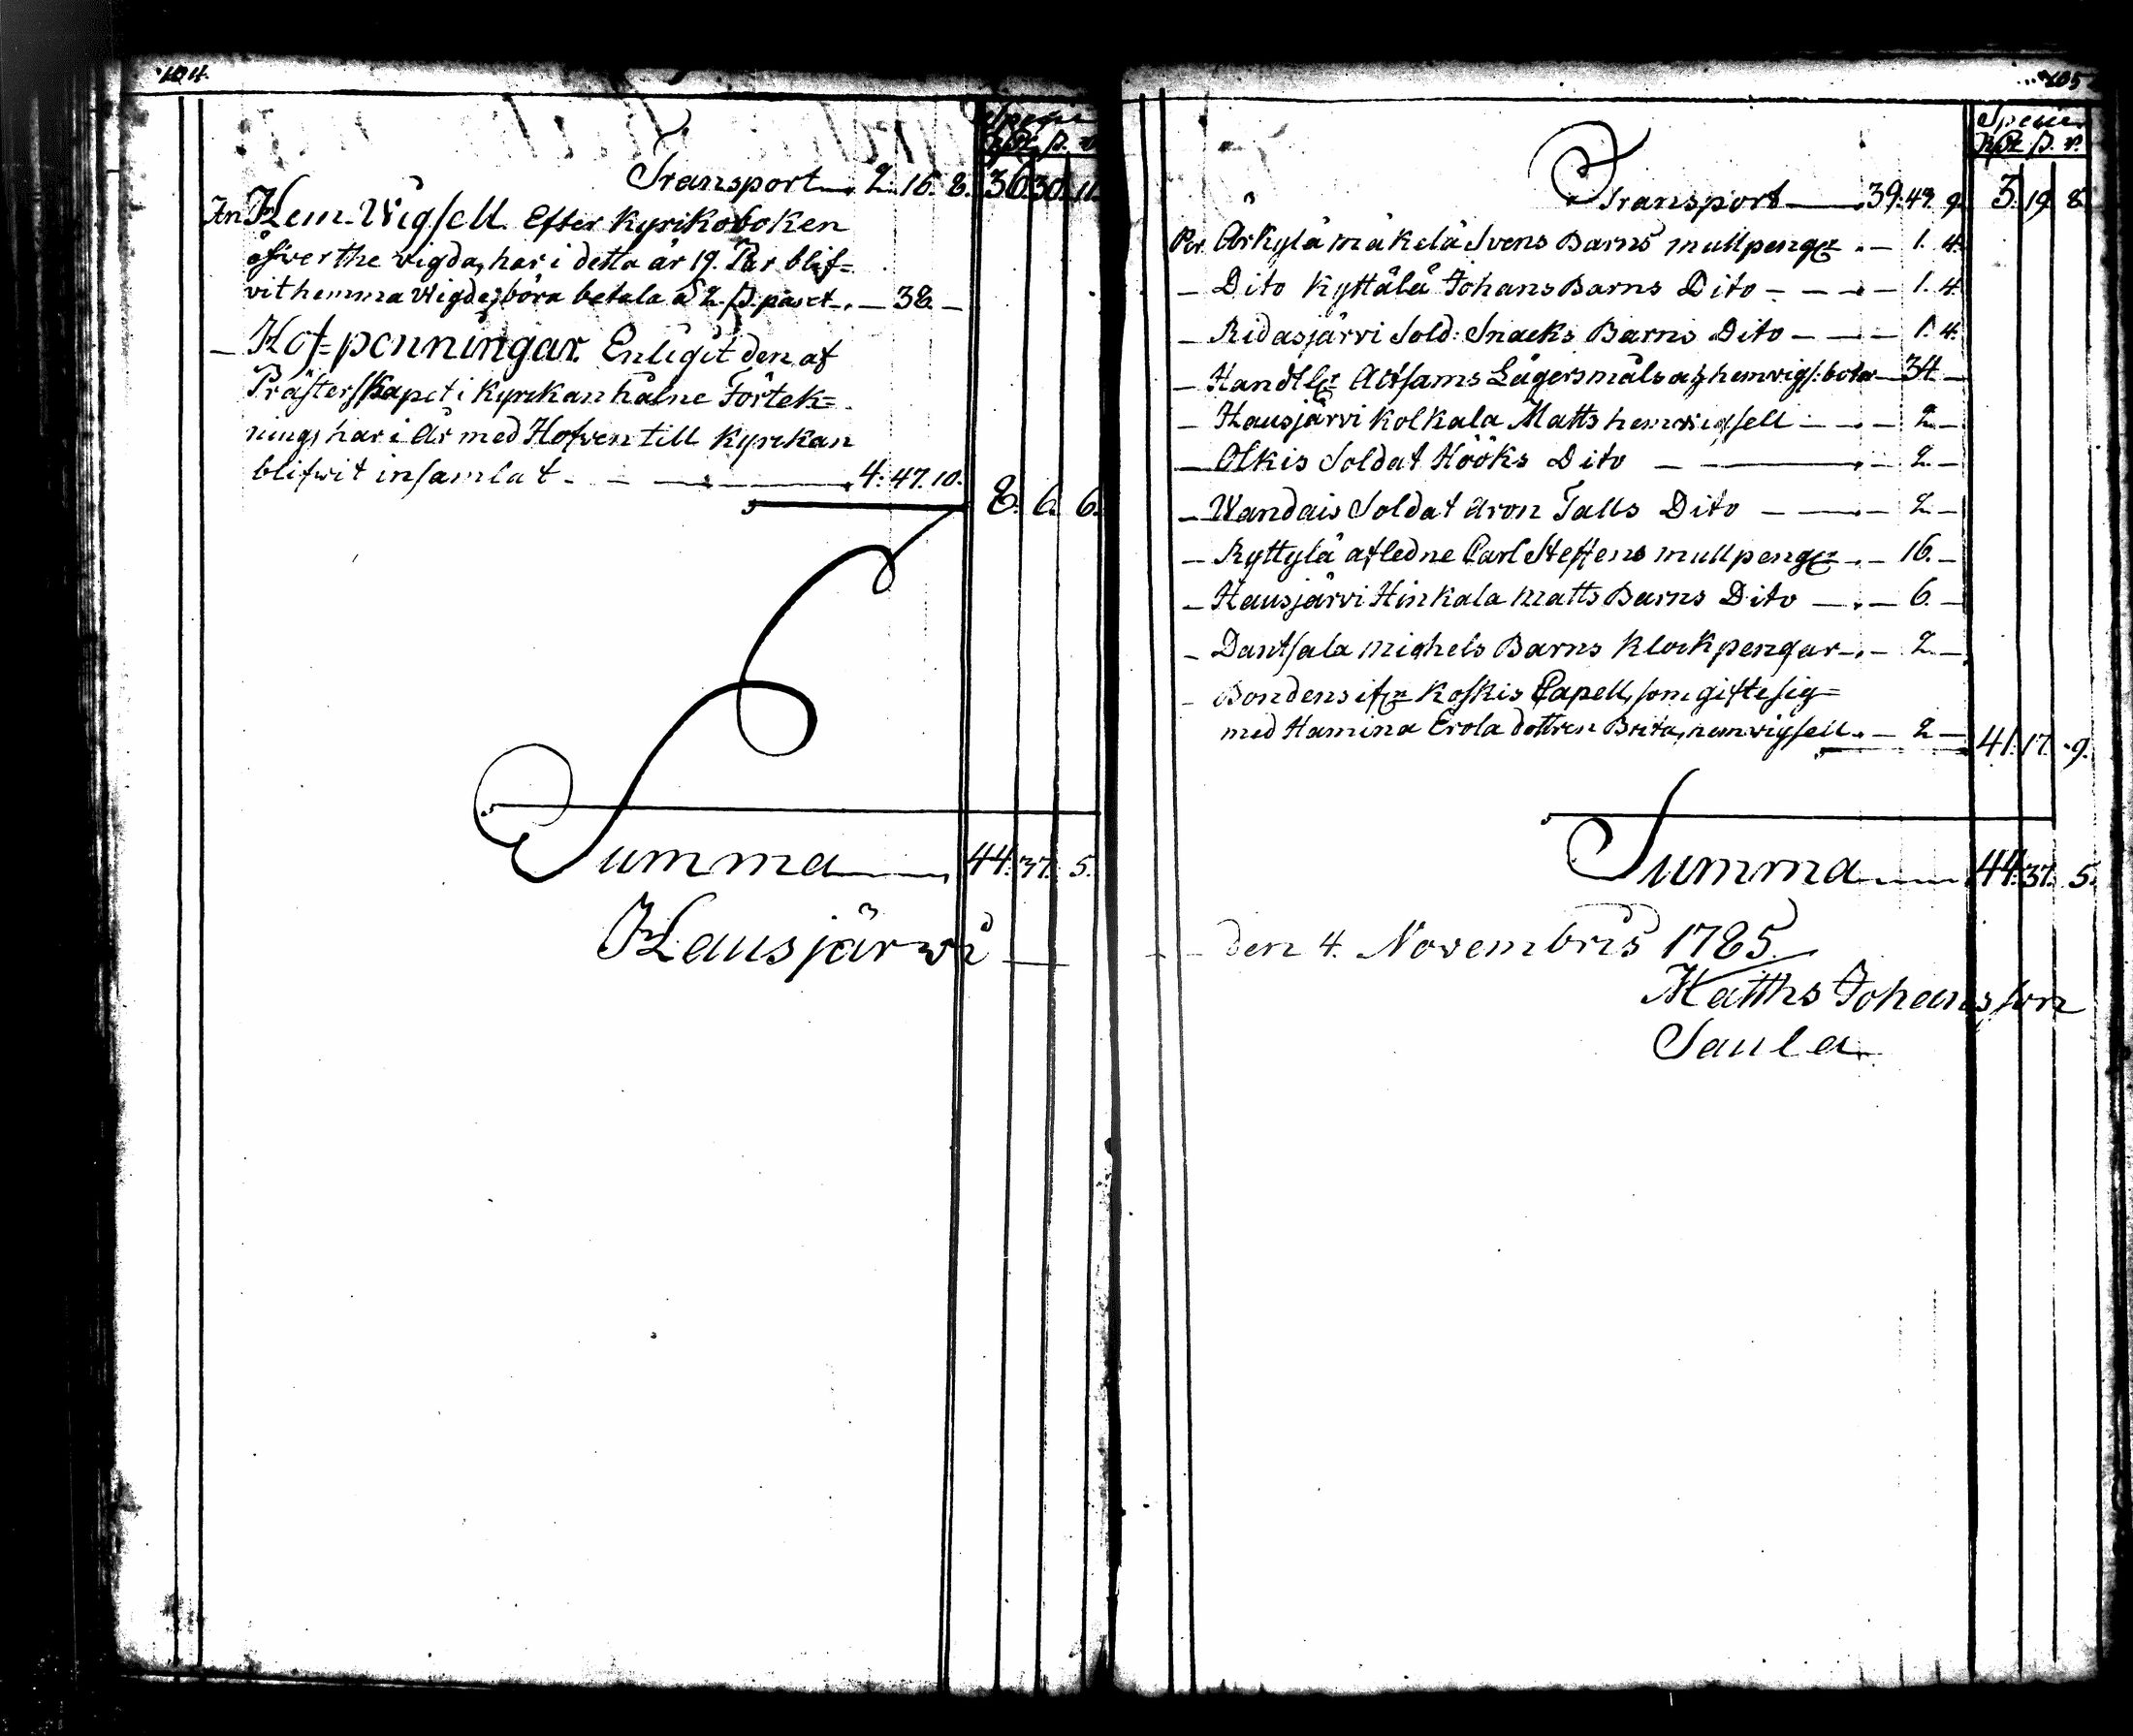 104.
Specie
Rdr ß. r.
Transport 2. 16. 8. 36. 30. 11.
An Hem-Wigsell. Efter Kyrikoboken
öfwer the vigda, har i detta år 19. Par blif=
vit hemma Wigde, böra betala à 2. ß. paret. — 38. —
— Hof-penningar. Enligit den af
Prästerskapet i Kyrkan hålne Förtek=
ning, har i År med Hofven till Kyrkan
blifwit insamlat - 4. 47. 10.
8. 6. 6.
Summa 44. 37. 5.
Hausjärwi
105
Specie
Rdr ß. r.
Transport 39. 49. 9. 3. 19. 8.
Per Arkylä Mäkelä Svens Barns mullpengr. — 1. 4.
— Dito Kyttälä Johans Barns Dito — 1. 4.
— Ridasjärvi Sold: Snacks Barns Dito — 1. 4.
— Lägersmåls hemvigs: böter 34. —
— Hausjärvi Kolkala Matts hemvigsell — 2. —
— Olkis Soldat Hööks Dito — 2. —
— Wandais Soldat Aron Talls Dito — 2. —
— Ryttylä afledne Carl Steffens mullpengr — 16. —
— Hausjärvi Hinkala Matts Barns Dito — 6. —
— Dantsala Michels Barns Klockpengar — 2. —
— Bondens ifr Koskis Capell, som gifte sig=
med Hamina Erola dottren Brita, hemvigsell. — 2. — 41. 17. 9.
Summa 44. 37. 5.
den 4. Novembris 1785.
Matths Johansson
Saula